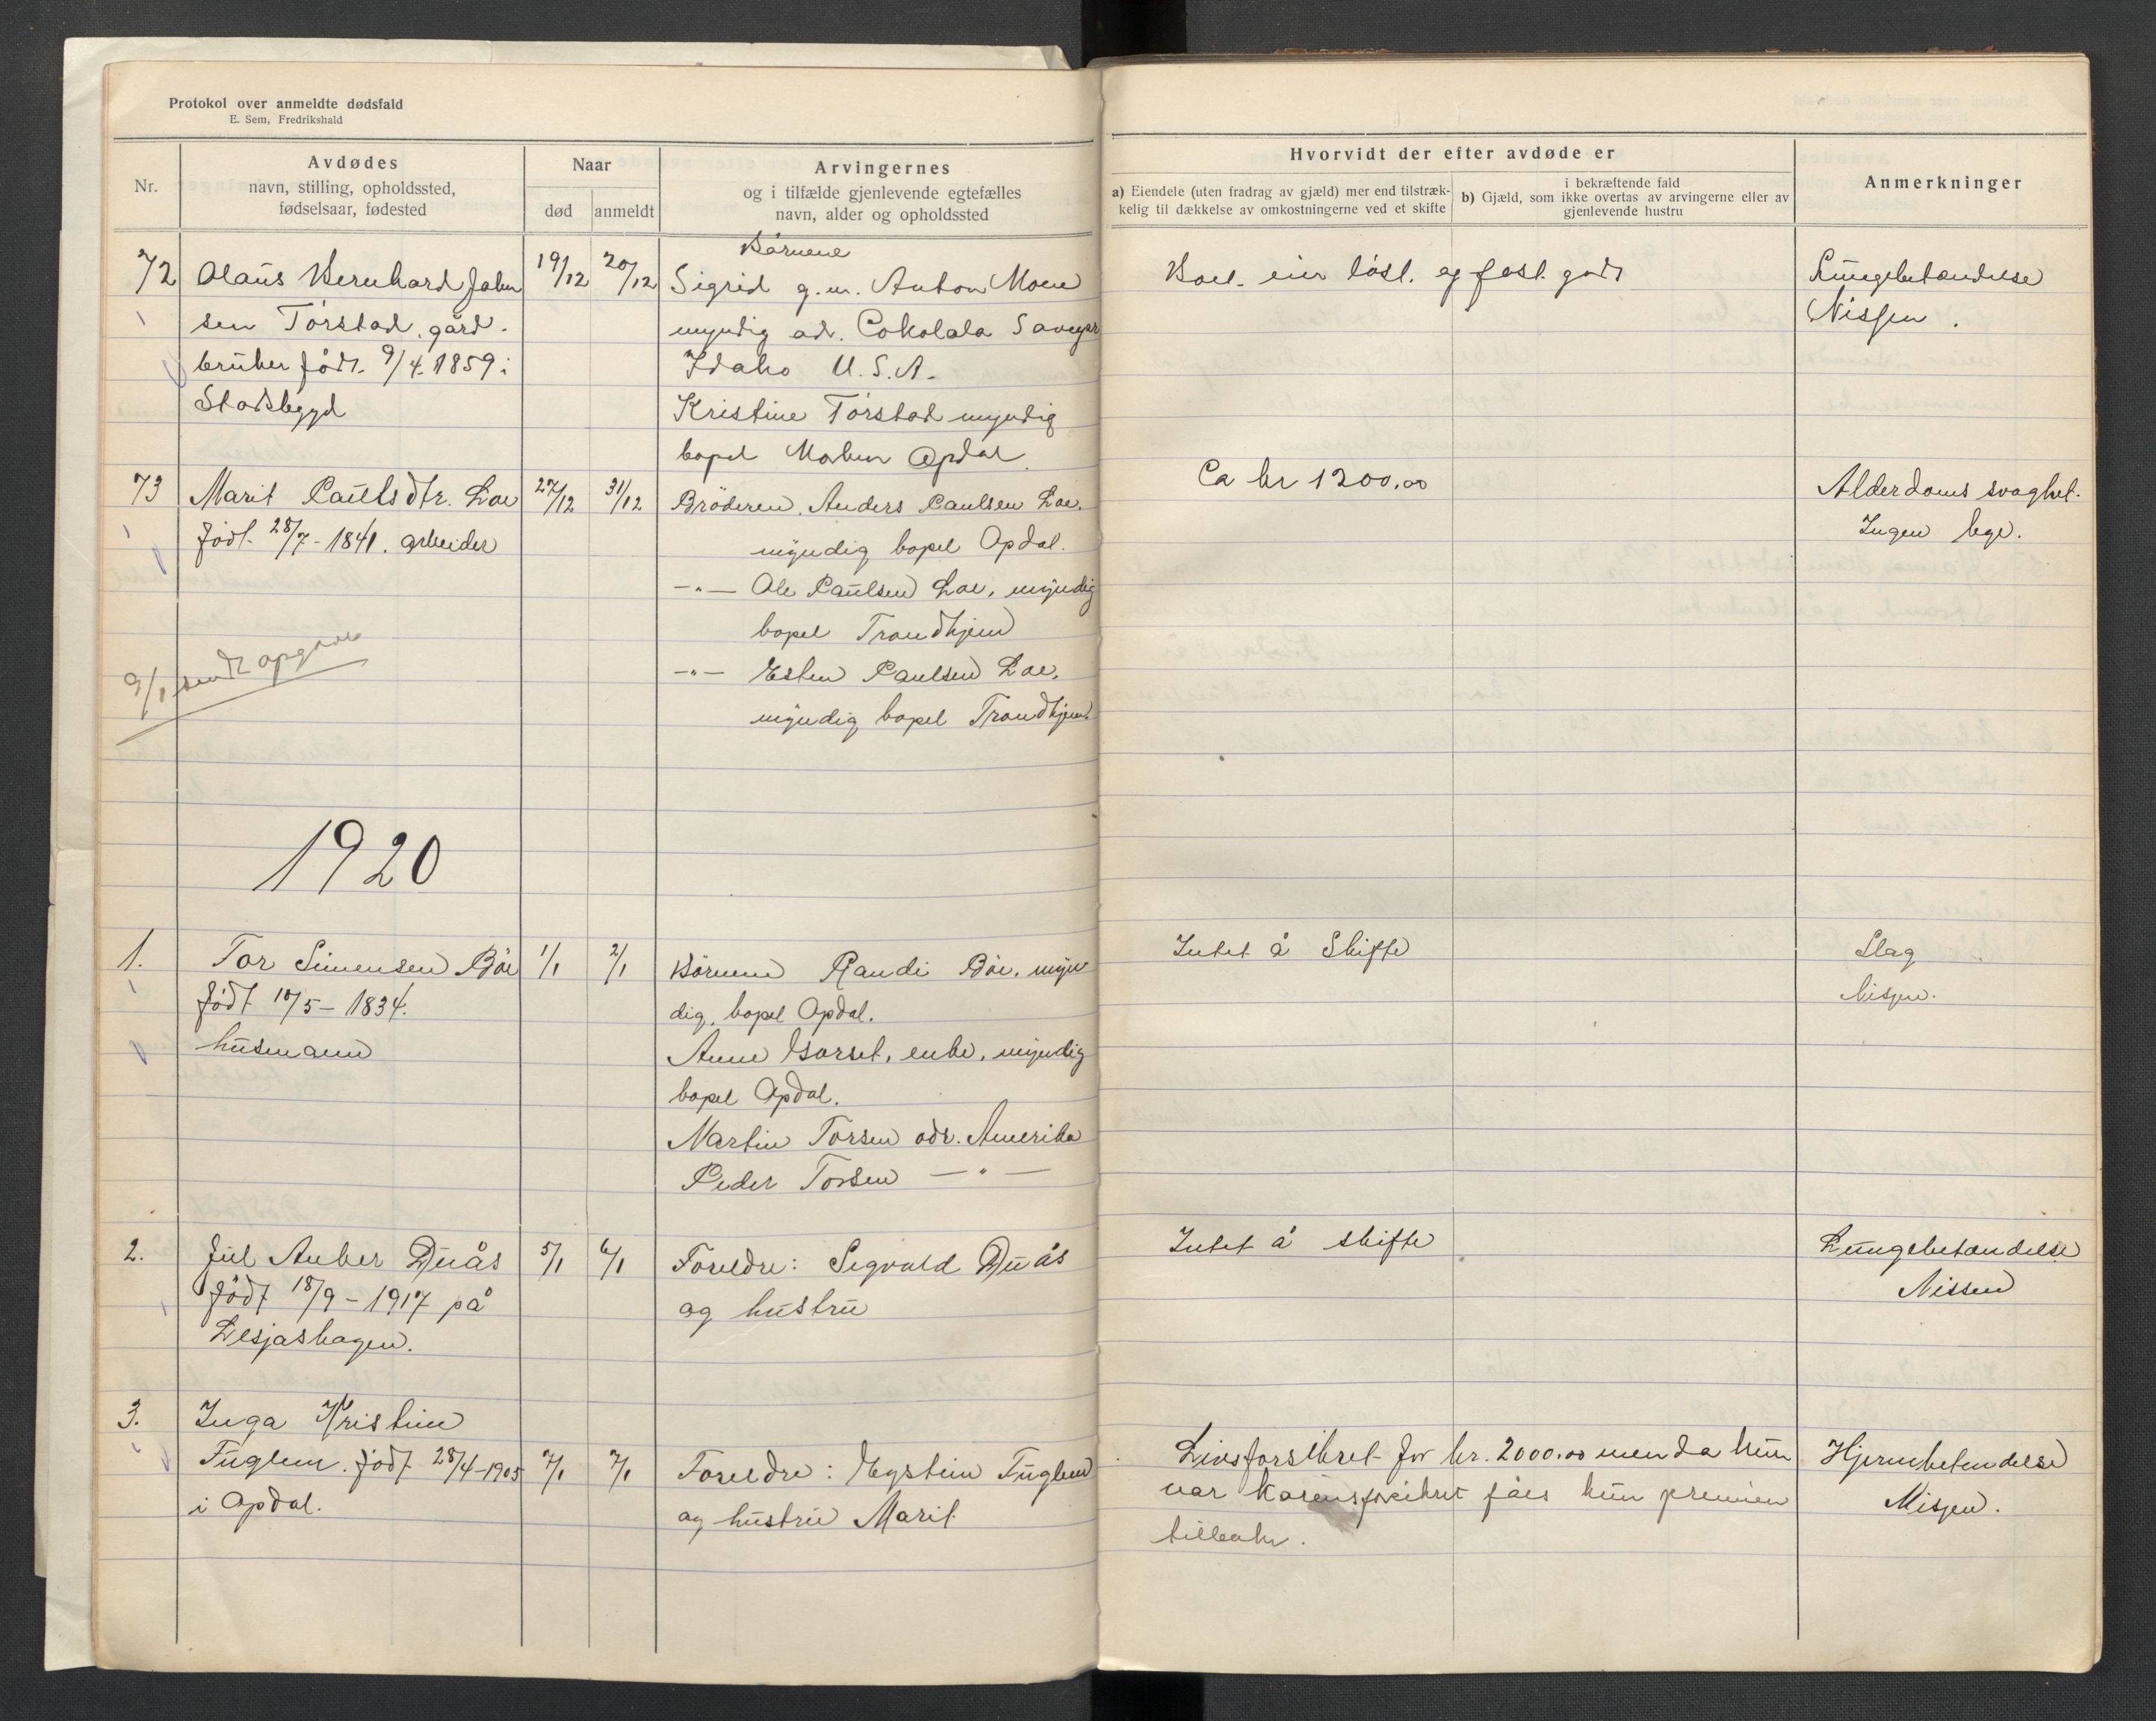 Protokol over anmeldte dødsfald
E. Sem, Fredrikshald
Nr.
Avdødes
navn, stilling, opholdssted,
fødselsaar, fødested
Naar
død
anmeldt
Arvingernes
og i tilfælde gjenlevende egtefælles
navn, alder og opholdssted
Hvorvidt der efter avdøde er
a) Eiendele (uten fradrag av gjæld) mer end tilstræk-
kelig til dækkelse av omkostningerne ved et skifte
i bekræftende fald
b) Gjæld, som ikke overtas av arvingerne eller av
gjenlevende hustru
Anmerkninger
72
Olaus Bernhard John
sen Törstad, gård-
bruker födt. 9/4-1859 i
Stadsbygd
19/12
20/12
Börnene
Sigrid g.m. Anton Moen
myndig adr. Cokolala
Idaho U.S.A.
Kristine Törstad myndig
bopel Opdal
Boet eier löst. og fast. gods
Lungebetendelse
Nissen.
73
Marit Paulsdtr. Loe
födt. 28/7-1841. arbeider
27/12
31/12
Bröderen. Anders Paulsen Loe.
myndig bopel Opdal.
-"- Ole Paulsen Loe, myndig
bopel Trondhjem
-"- Esten Paulsen Loe,
myndig bopel Trondhjem.
Ca kr 1200.00
Alderdoms svaghet.
Ingen lege.
9/1 sendt opgave
1920
1.
Tor Simensen Böe
födt 10/5-1834.
husmann
1/1
2/1
Börnene Randi Böe, myn
dig, bopel Opdal.
Anne Horset, enke, myndig
bopel Opdal.
Martin Torsen adr. Amerika
Peder Torsen -"-
Intet å Skifte
Slag
Nissen.
2.
Jul Anker Duås
födt 18/9-1917 på
Lesjaskogen.
5/1
6/1
Foreldre: Sigvald Duås
og hustru
Intet å skifte
Lungebetendelse
Nissen
3.
Inga Kristine
Fuglem. födt 28/4-1905
i Opdal.
7/1
7/1
Foreldre: Eystein Fuglem
og hustru Marit
Livsforsikret for kr. 2000.00 men da hun
var karensforsikret fåes kun premien
tilbake.
Hjernebetendelse
Nissen.